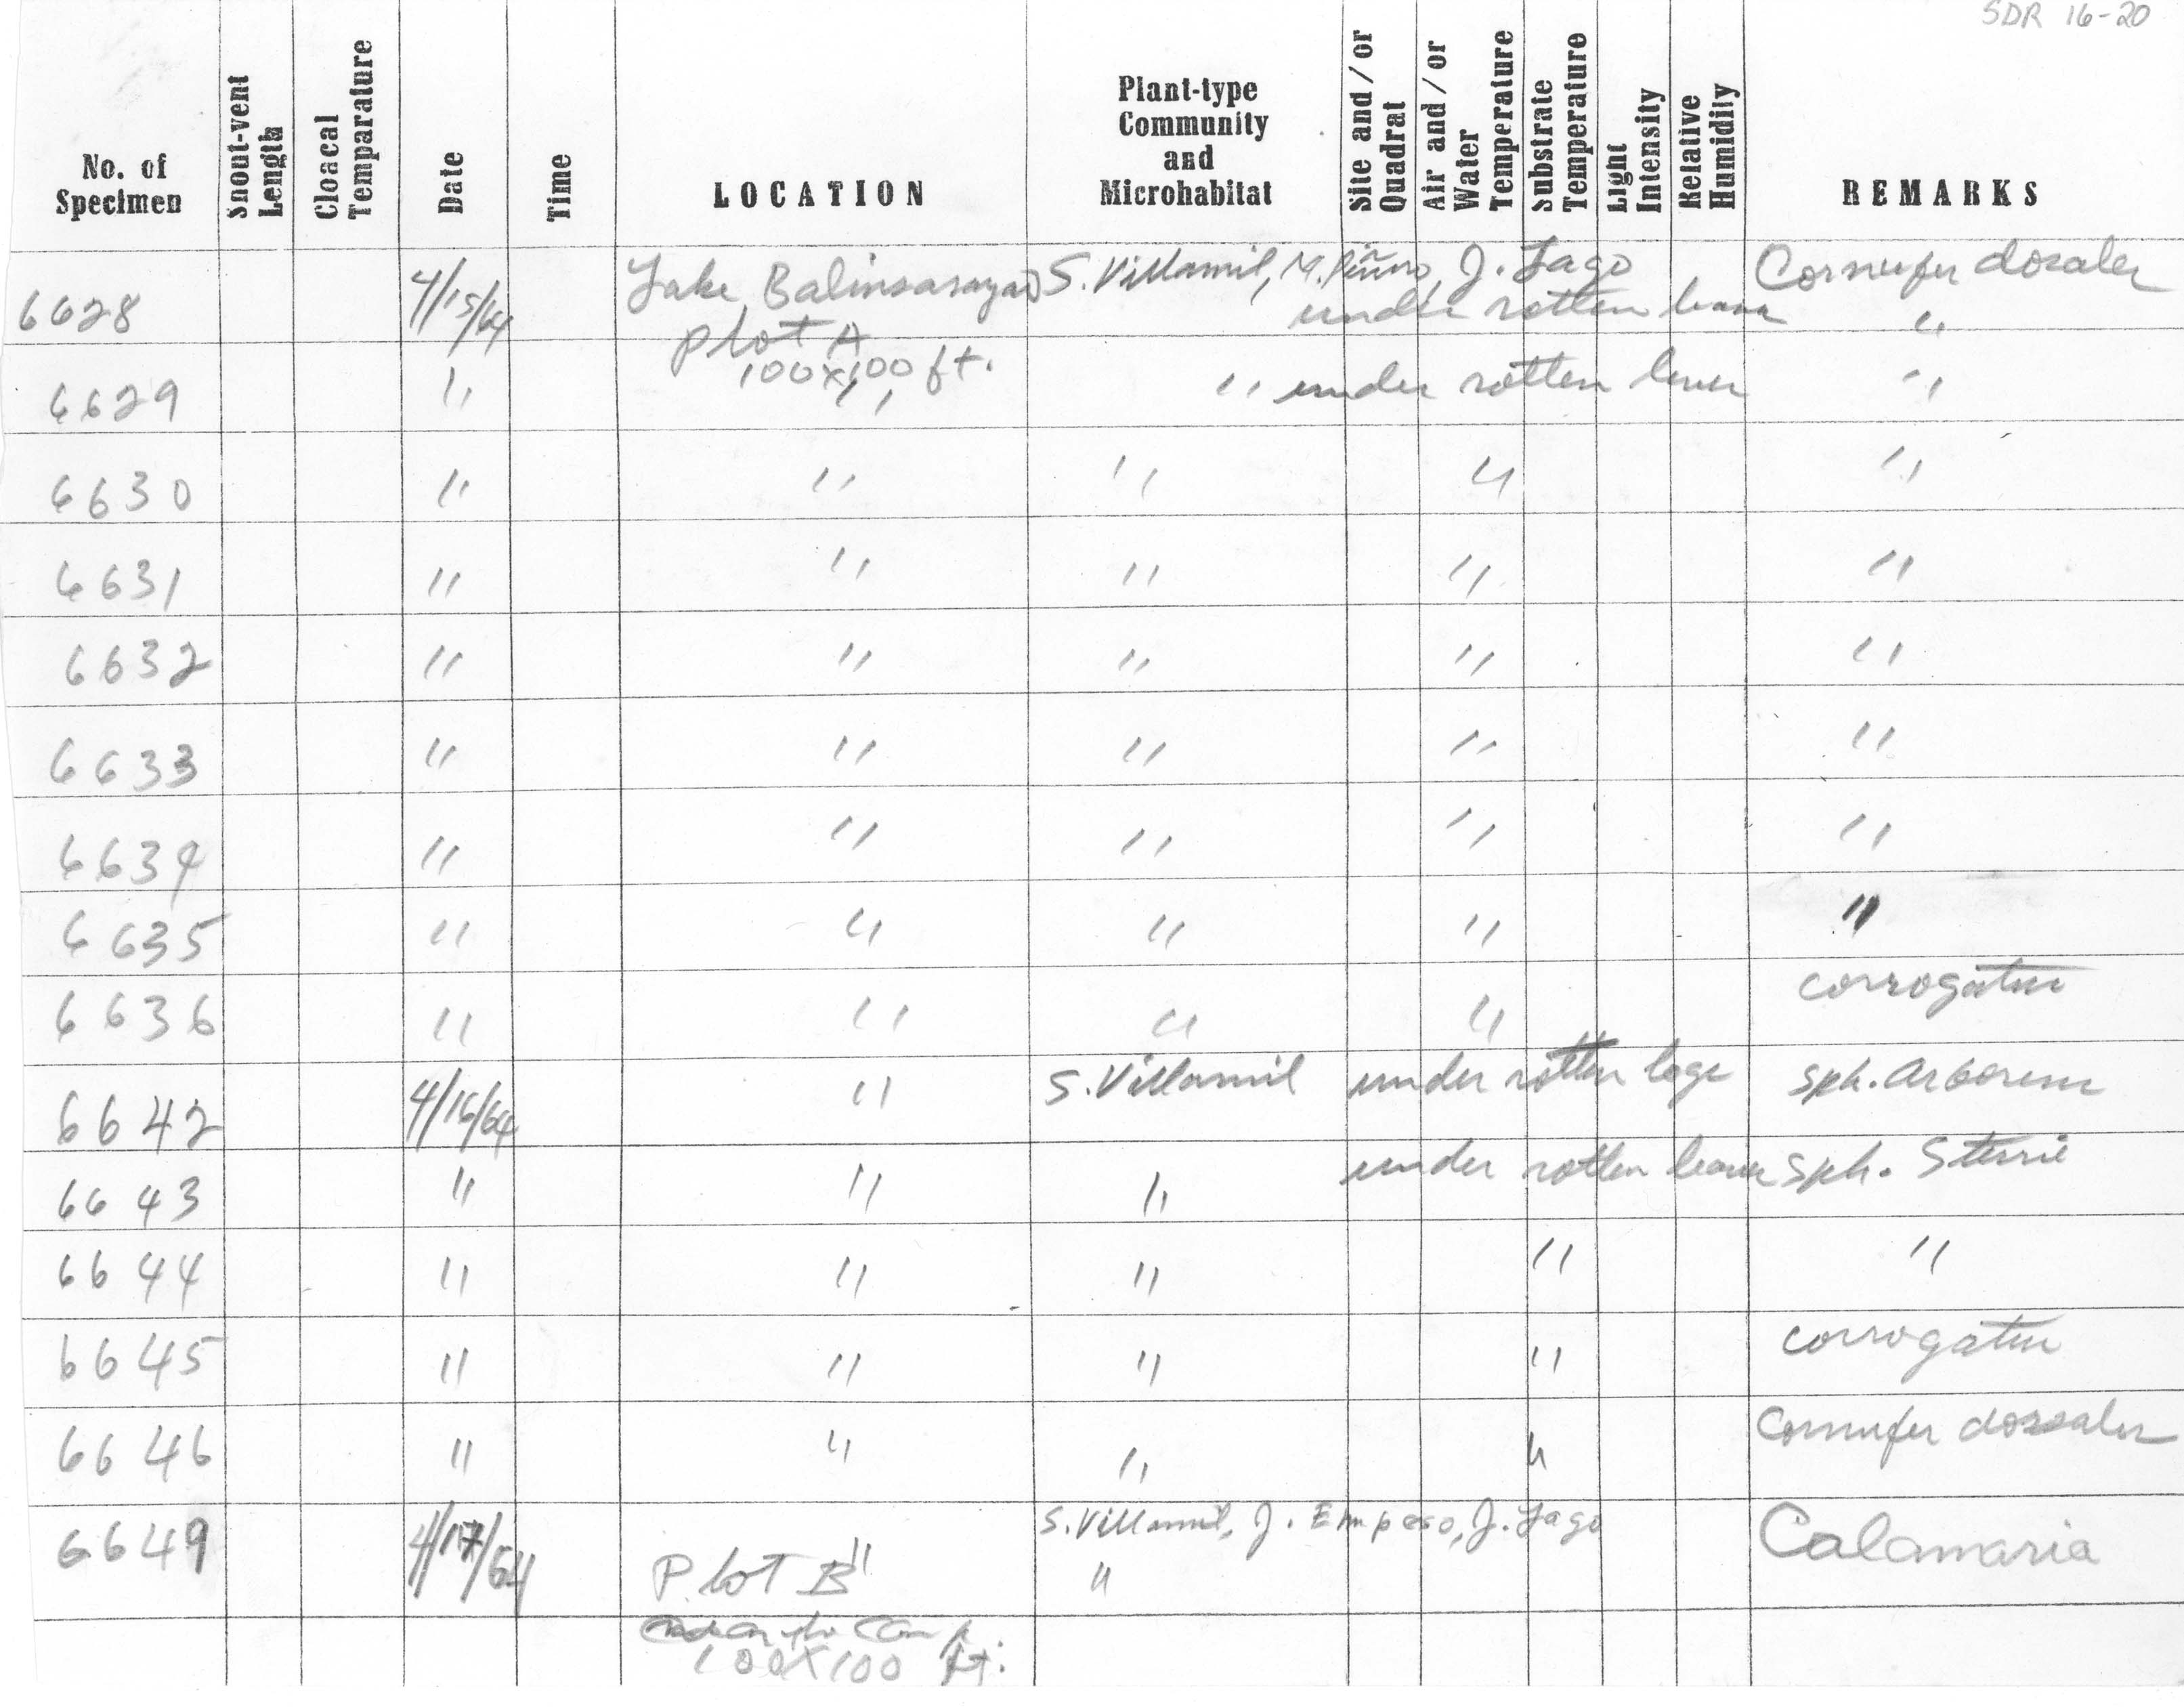 SDR 16-20
No. of Specimen Snout-vent Length Cloacal Temparature Date Time LOCATION Plant-type Community and Microhabitat Site and / or Quadrat Air and / or Water Temperature Substrate Temperature Light Intensity Relative Humidity REMARKS
6628 4/15/64 Lake Balinsasayao S. Villamil, M. J. Lago Cornufer dorsales
plot A under rotten leaves "
100x100 ft.
6629 " " " under rotten leaves "
6630 " " " " "
6631 " " " " "
6632 " " " " "
6633 " " " " "
6634 " " " " "
6635 " " " " "
6636 " " " " corrogatus
6642 4/16/64 " S. Villamil under rotten logs sph. Arborens
6643 " " " under rotten leaves sph. Steerei
6644 " " " " "
6645 " " " " corrogatus
6646 " " " " Cornufer dorsales
6649 4/17/64 " S. Villamil, J. Empeso, J. Lago Calamaria
Plot B "
100X100 ft.